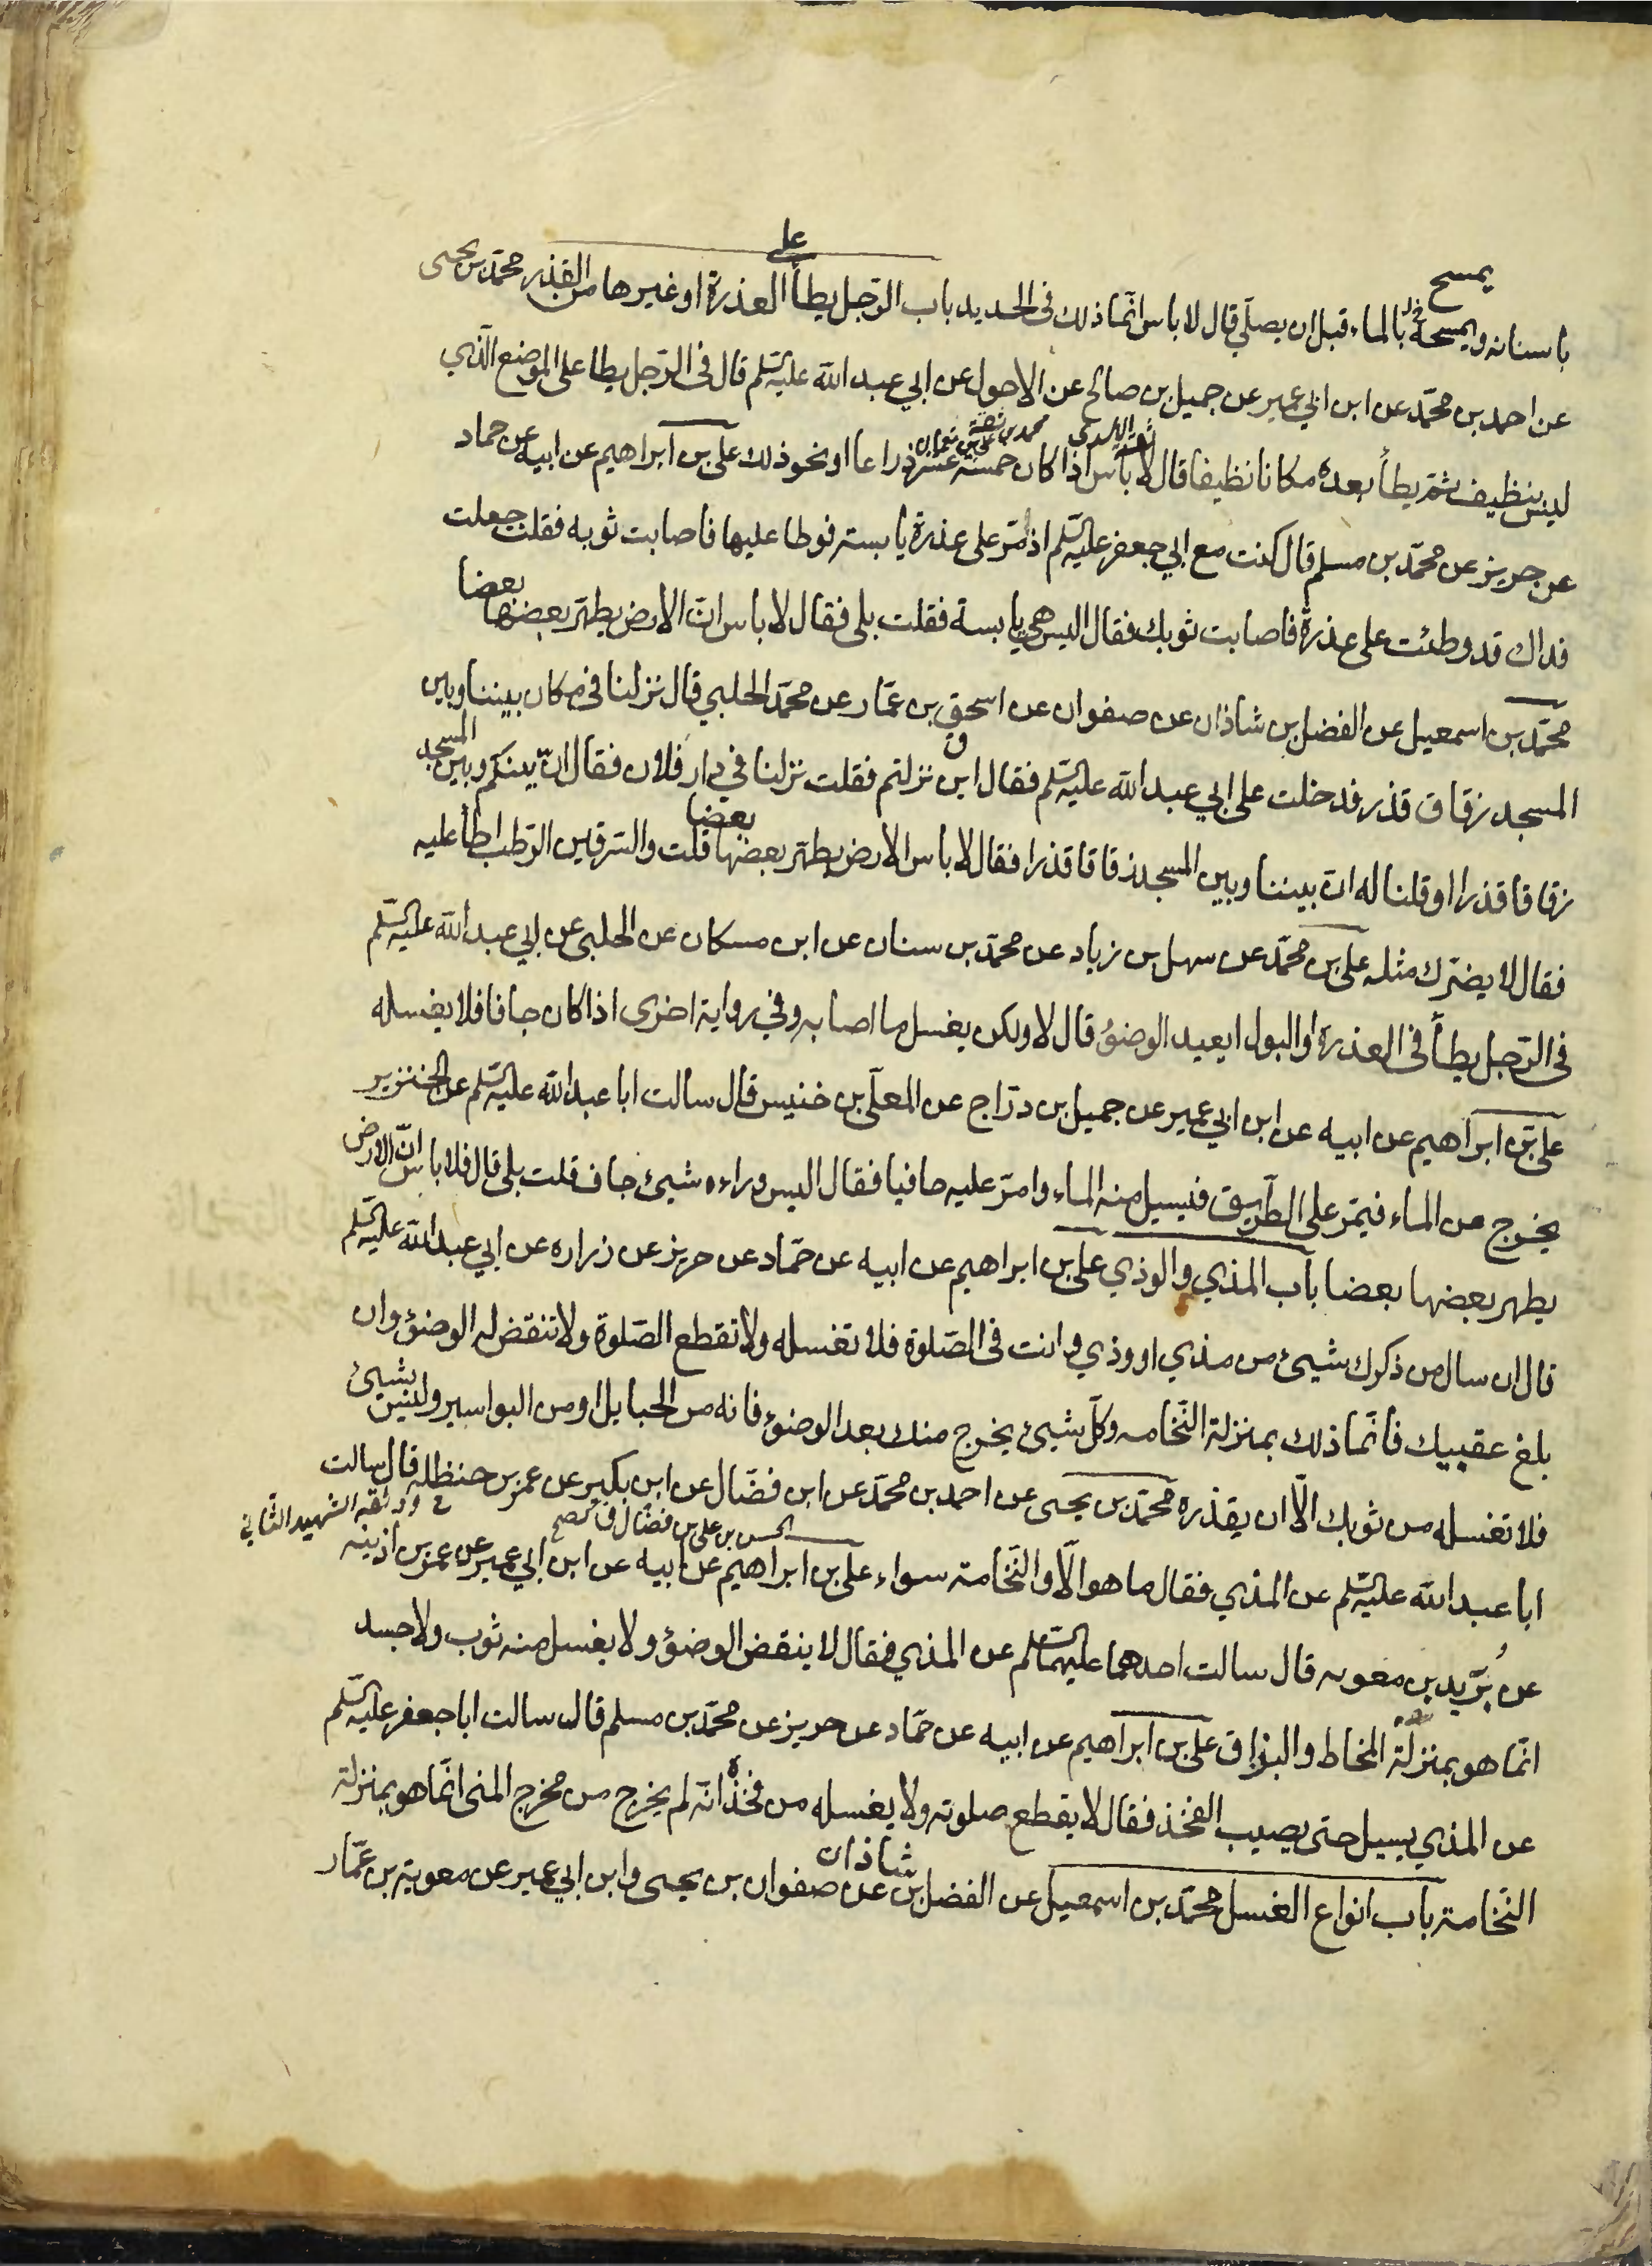 باسنانه ويمسحه بالماء قبل ان يصلّي قال لا باس انّما ذلك في الحديد باب الرّجل يطأ العذرة او غيرها من القذر محمّد بن يحيى
يمسح
على
عن احمد بن محمّد عن ابن ابي عمير عن جميل بن صالح عن الاحول عن ابي عبد الله عليه السّلم قال في الرّجل يطا على الموضع الّذي
ليس بنظيف ثمّ يطأ بعده مكانا نظيفا قال لا بأس اذا كان خمسة عشر ذراعا او نحو ذلك علي بن ابراهيم عن ابيه عن حماد
عن حريز عن محمّد بن مسلم قال كنت مع ابي جعفر عليه السّلم اذ مرّ على عذرة يابسة فوطا عليها فاصابت ثوبه فقلت جعلت
فداك قد وطئت على عذرة فاصابت ثوبك فقال اليس هي يابسة فقلت بلى فقال لا باس انّ الارض يطهّر بعضها بعضا
محمّد بن اسمعيل عن الفضل بن شاذان عن صفوان عن اسحق بن عمّار عن محمّد الحلبي قال نزلنا في مكان بيننا وبين
المسجد زقاق قذر فدخلت على ابي عبد الله عليه السّلم فقال اين نزلتم فقلت نزلنا في دار فلان فقال انّ بينكم وبين المسجد
زقاقا قذرا او قلنا له انّ بيننا وبين المسجد زقاقا قذرا فقال لا باس الارض يطهّر بعضها بعضا قلت والسّرقين الرّطب اطأ عليه
فقال لا يضرّك مثله علي بن محمّد عن سهل بن زياد عن محمّد بن سنان عن ابن مسكان عن الحلبي عن ابي عبد الله عليه السّلم
في الرّجل يطأ في العذرة او البول ايعيد الوضوُ قال لا ولكن يغسل ما اصابه وفي رواية اخرى اذا كان جافا فلا يغسله
علي بن ابراهيم عن ابيه عن ابن ابي عمير عن جميل بن درّاج عن المعلّى بن خنيس قال سالت ابا عبد الله عليه السّلم عن الخنزير
يخرج من الماء فيمرّ على الطّريق فيسيل منه الماء وامرّ عليه حافيا فقال اليس وراءه شيئ جاف قلت بلى قال فلا باس انّ الارض
يطهر بعضها بعضا باب المذي والوذي علي بن ابراهيم عن ابيه عن حمّاد عن حريز عن زراره عن ابي عبد الله عليه السّلم
قال ان سال من ذكرك شيئ من مذي او وذي وانت في الصّلوة فلا تغسله ولا تقطع الصّلوة ولا تنقض له الوضوُ وان
بلغ عقبيك فانّما ذلك بمنزلة النّخامه وكلّ شيئ يخرج منك بعد الوضوُ فانه من الحبايل او من البواسير وليس بشيئ
فلا تغسله من ثوبك الّا ان يقذره محمّد بن يحيى عن احمد بن محمّد عن ابن فضّال عن ابن بكير عن عمر بن حنظله قال سالت
الحسن بن علي بن فضّال
وثقه الشهيد الثّاني
ابا عبد الله عليه السّلم عن المذي فقال ما هو الّا والنّخامة سواء علي بن ابراهيم عن ابيه عن ابن ابي عمير عن عمر بن اذينه
عن بُرَيد بن معويه قال سالت احدهما عليهما السّلم عن المذي فقال لا ينقض الوضوُ ولا يغسل منه ثوب ولا جسد
انّما هو بمنزلة المخاط والبزاق علي بن ابراهيم عن ابيه عن حمّاد عن حريز عن محمّد بن مسلم قال سالت ابا جعفر عليه السّلم
عن المذي يسيل حتى يصيب الفخذ فقال لا يقطع صلوته ولا يغسله من فخذه انّه لم يخرج من مخرج المنى انّما هو بمنزلة
النّخامة باب انواع الغسل محمّد بن اسمعيل عن الفضل بن شاذان عن صفوان بن يحيى وابن ابي عمير عن معوية بن عمّار